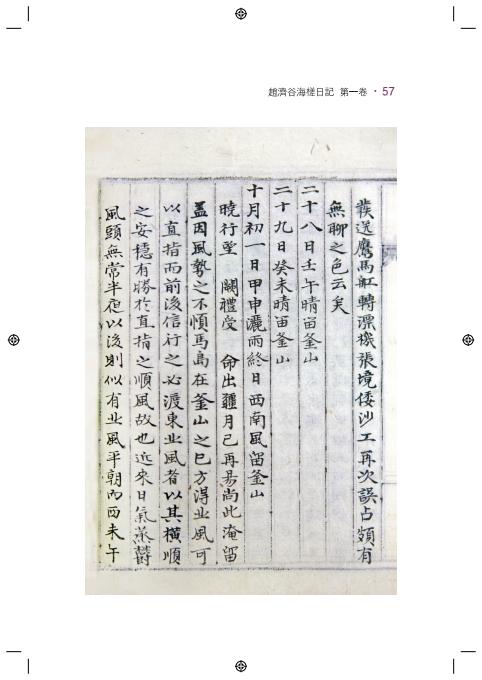 趙濟谷海槎日記 第一卷 · 57
裝送鷹馬舡轉漂機張境倭沙工再次誤占頗有
無聊之色云矣
二十八日壬午晴留釜山
二十九日癸未晴留釜山
十月初一日甲申灑雨終日西南風留釜山
曉行望 闕禮受 命出疆月已再易尚此淹留
盖因風勢之不順馬島在釜山之巳方得业風可
以直指而前後信行之必渡東业風者以其橫順
之安穩有勝於直指之順風故也近來日氣蒸鬱
風頭無常半夜以後則似有业風平朝內西未午